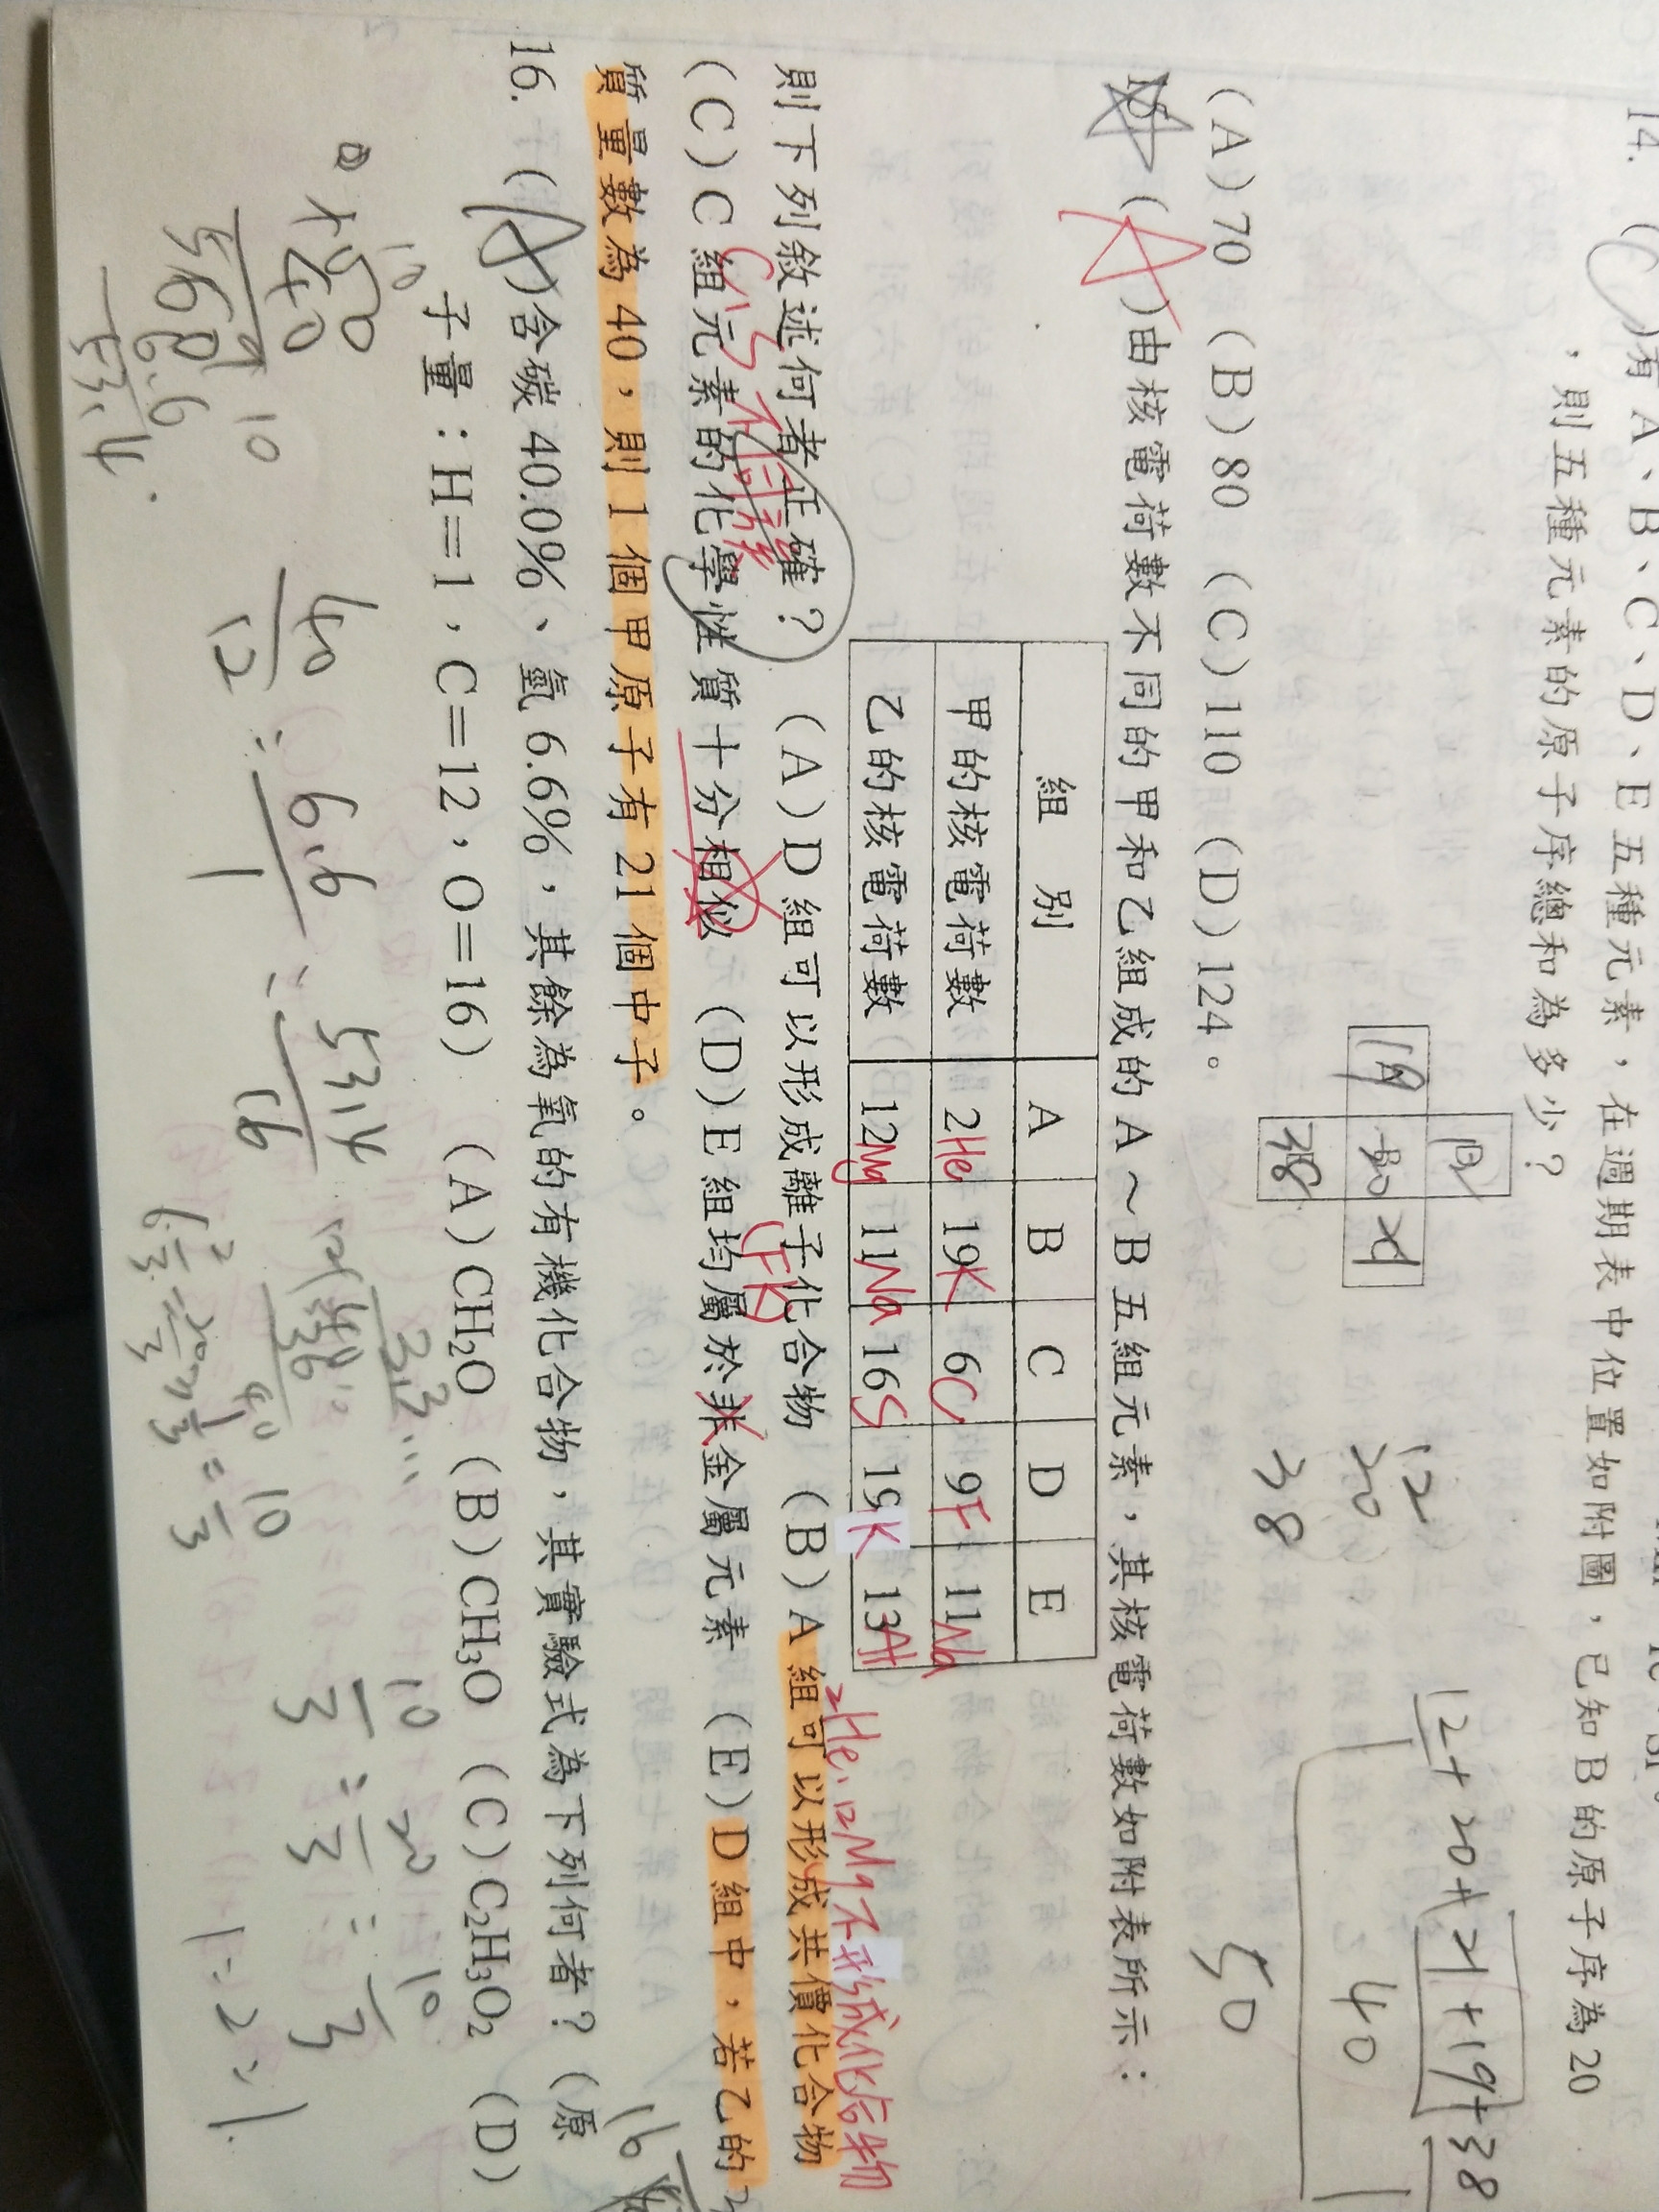 14. (C)有 A、B、C、D、E 五種元素，在週期表中位置如附圖，已知 B 的原子序為 20
，則五種元素的原子序總和為多少？
12
19 20 21
38
12
20
38
12+20+21+19+38
40
50
(A)70 (B)80 (C)110 (D)124。
15. (A)由核電荷數不同的甲和乙組成的 A～B 五組元素，其核電荷數如附表所示：
組 別 A B C D E
甲的核電荷數 2He 19K 6C 9F 11Na
乙的核電荷數 12Mg 11Na 16S 19K 13Al
2He、12Mg不形成化合物
則下列敘述何者正確？ (A)D 組可以形成離子化合物 (B)A 組可以形成共價化合物
C、S不同族
(FK)
(C)C 組元素的化學性質十分相似 (D)E 組均屬於非金屬元素 (E)D 組中，若乙的
質量數為 40，則 1 個甲原子有 21 個中子。
16. (A)含碳 40.0%、氫 6.6%，其餘為氧的有機化合物，其實驗式為下列何者？（原
子量：H＝1，C＝12，O＝16） (A)CH₂O (B)CH₃O (C)C₂H₃O₂ (D)
40/12 : 6.6/1 : 53.4/16
10/3 : 20/3 : 10/3
1:2:1